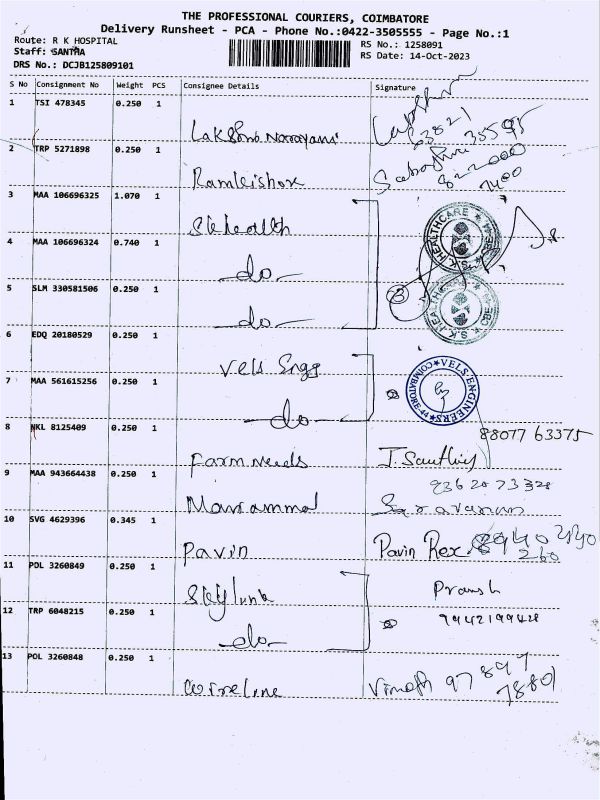 THE PROFESSIONAL COURIERS, COIMBATORE
Delivery Runsheet - PCA - Phone No.:0422-3505555 - Page No.:1
Route: R K HOSPITAL
RS No.: 1258091
Staff: SANTHA
RS Date: 14-Oct-2023
DRS No.: DCJB125809101
S No Consignment No Weight PCS Consignee Details Signature
1 TSI 478345 0.250 1
Lakshmi Narayani
63821 35595
2 TRP 5271898 0.250 1
Ramkishore
3 MAA 106696325 1.070 1
Sk health
4 MAA 106696324 0.740 1
-do-
K.S. HEALTHCARE CBE
5 SLM 330581506 0.250 1
-do-
3
K.S. HEALTHCARE CBE
6 EDQ 20180529 0.250 1
Vels Engg
7 MAA 561615256 0.250 1
-do-
VELS ENGINEERS COIMBATORE-44
8 NKL 8125409 0.250 1
88077 63375
Farm needs
9 MAA 943664438 0.250 1
Mariammal Saravanan
10 SVG 4629396 0.345 1
Pavin Pavin Rex 8940 440 260
11 POL 3260849 0.250 1
Skylink
12 TRP 6048215 0.250 1
-do-
9942199428
13 POL 3260848 0.250 1
Wireline Vinoth 97897 78801